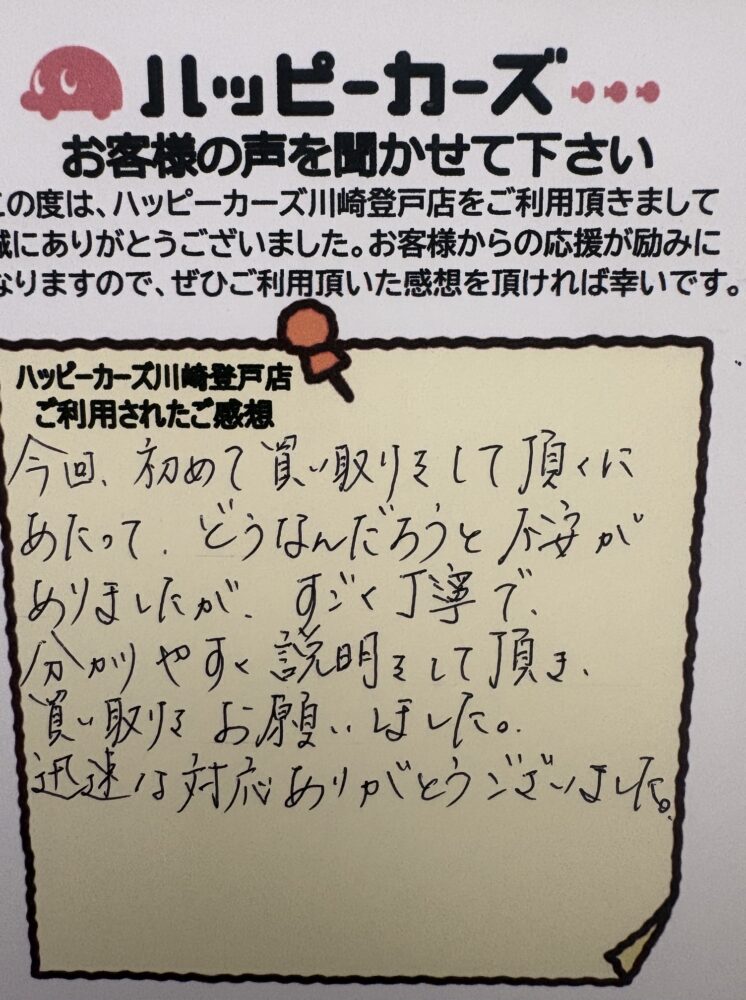 ハッピーカーズ
お客様の声を聞かせて下さい
この度は、ハッピーカーズ川崎登戸店をご利用頂きまして
誠にありがとうございました。お客様からの応援が励みに
なりますので、ぜひご利用頂いた感想を頂ければ幸いです。
ハッピーカーズ川崎登戸店
ご利用されたご感想
今回、初めて買い取りをして頂くに
あたって、どうなんだろうと不安が
ありましたが、すごく丁寧で、
分かりやすく説明をして頂き、
買い取りを お願いしました。
迅速な対応ありがとうございました。